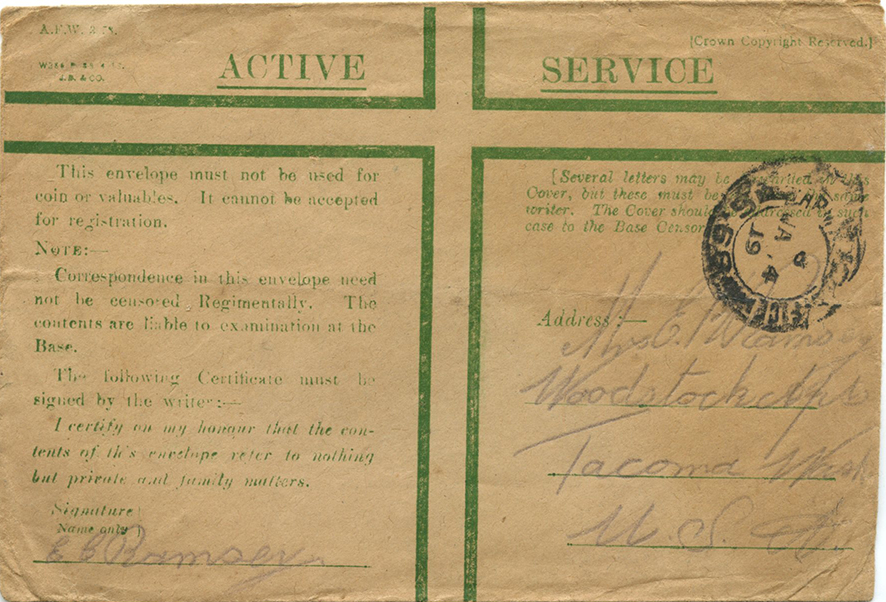 A.F.W. 3078.
[Crown Copyright Reserved.]
J.B. & CO.
ACTIVE SERVICE
This envelope must not be used for
coin or valuables. It cannot be accepted
for registration.
NOTE:—
Correspondence in this envelope need
not be censored Regimentally. The
contents are liable to examination at the
Base.
The following Certificate must be
signed by the writer:—
I certify on my honour that the con-
tents of this envelope refer to nothing
but private and family matters.
Signature
Name only
E C Ramsey
[Several letters may be
Cover, but these must be
writer. The Cover should be addressed
case to the Base Censor
19
Address:—
Mrs E. Ramsey
Woodstock Apt
Tacoma Wash
U. S. A.